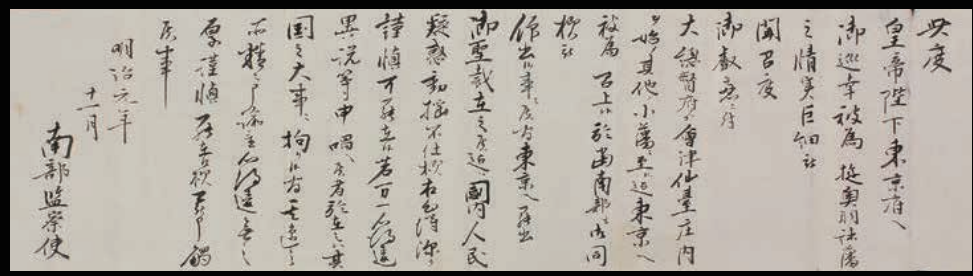 此度
皇帝陛下東京府へ
御巡幸被為 挺奥羽諸藩
之情実巨細被
聞召度
御叡慮ニ付
大総督府ゟ會津仙臺庄内
始其他小藩ニ至迄東京へ
被為 召上ニ於當南部も同
様被
仰出候事ニ候右東京へ罷出
御聖裁立之候迄ハ國内人民
疑惑動揺不仕様
謹慎可罷在候若万一心得違
異説等申唱候者於在之ハ其
国之大事ニ拘
心得違無之
厚謹慎罷在候様
候事
明治元年
十一月
南部監察使